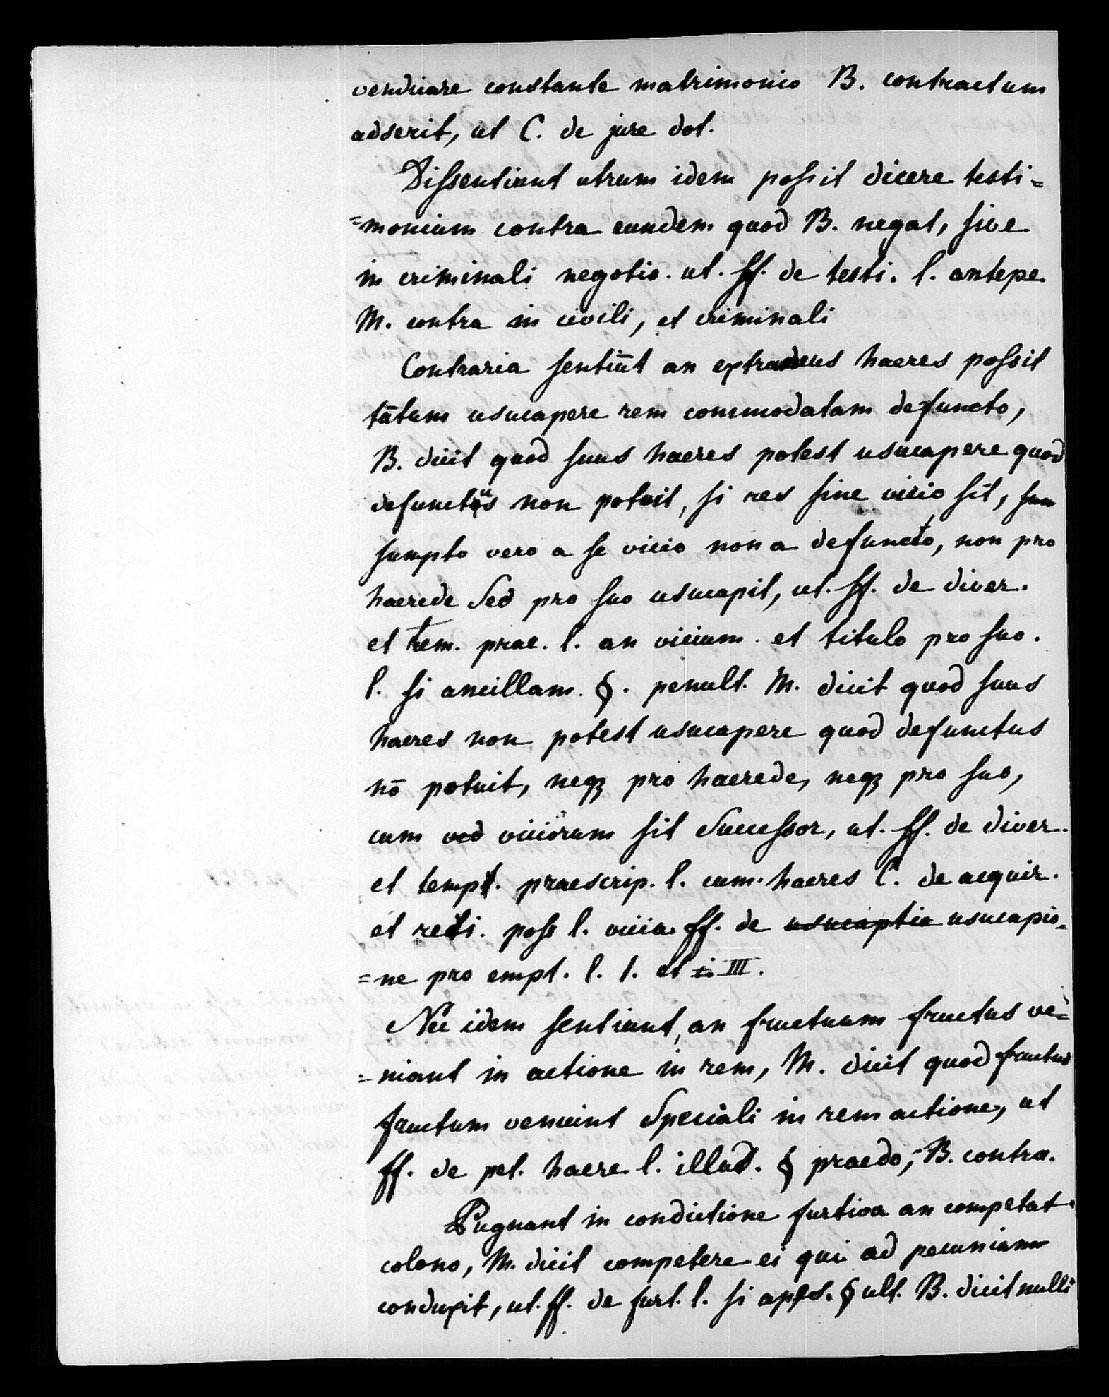 vendicare constante matrimonio B. contractum
adserit, ut C. de jure dot.
Dissentiunt utrum idem possit dicere testi=
=monium contra eundem quod B. negat, sive
in criminali negotio. ut. ff. de testi. l. antepe.
M. contra in civili, et criminali
Contraria sentiūt an extraneus haeres possit
tātum usucapere rem commodatam defuncto,
B. dicit quod suus haeres potest usucapere quod
defunctus non potuit, si res sine vicio sit,
sumpto vero a se vicio non a defuncto, non pro
haerede sed pro suo usucapit, ut. ff. de diver.
et tem. prae. l. an vicium. et titulo pro suo.
l. si ancillam. §. penult. M. dicit quod suus
haeres non potest usucapere quod defunctus
nō potuit, neq3 pro haerede, neq3 pro suo,
cum viciorum sit Successor, ut. ff. de diver.
et temp. praescrip. l. cum. haeres C. de acquir.
et reti. poss l. vicia. ff. de usucaptio usucapio=
=ne pro empt. l. 1. et III.
Nec idem sentiunt, an fructuum fructus ve=
=niant in actione in rem, M. dicit quod fructus
fructum veniunt Speciali in rem actione, ut
ff. de pet. haere l. illud. § praedo, B. contra.
Pugnant in condictione furtiva an competat
colono, M. dicit competere ei qui ad pecuniam
conduxit, ut. ff. de furt. l. si apes. § ult. B. dicit nulli